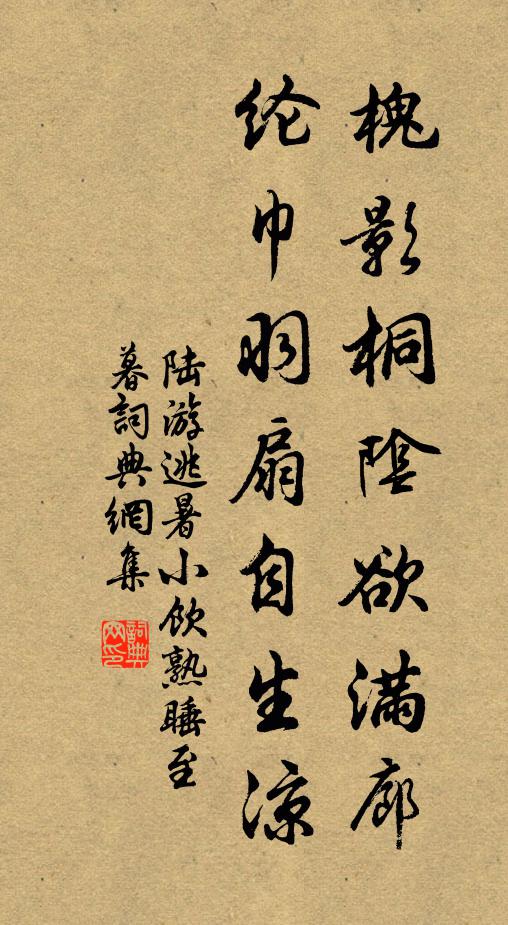 槐影桐陰欲滿廊
纶巾羽扇自生涼
陆游逃暑小飲熟睡至
暮詞典網集
詞典
网印